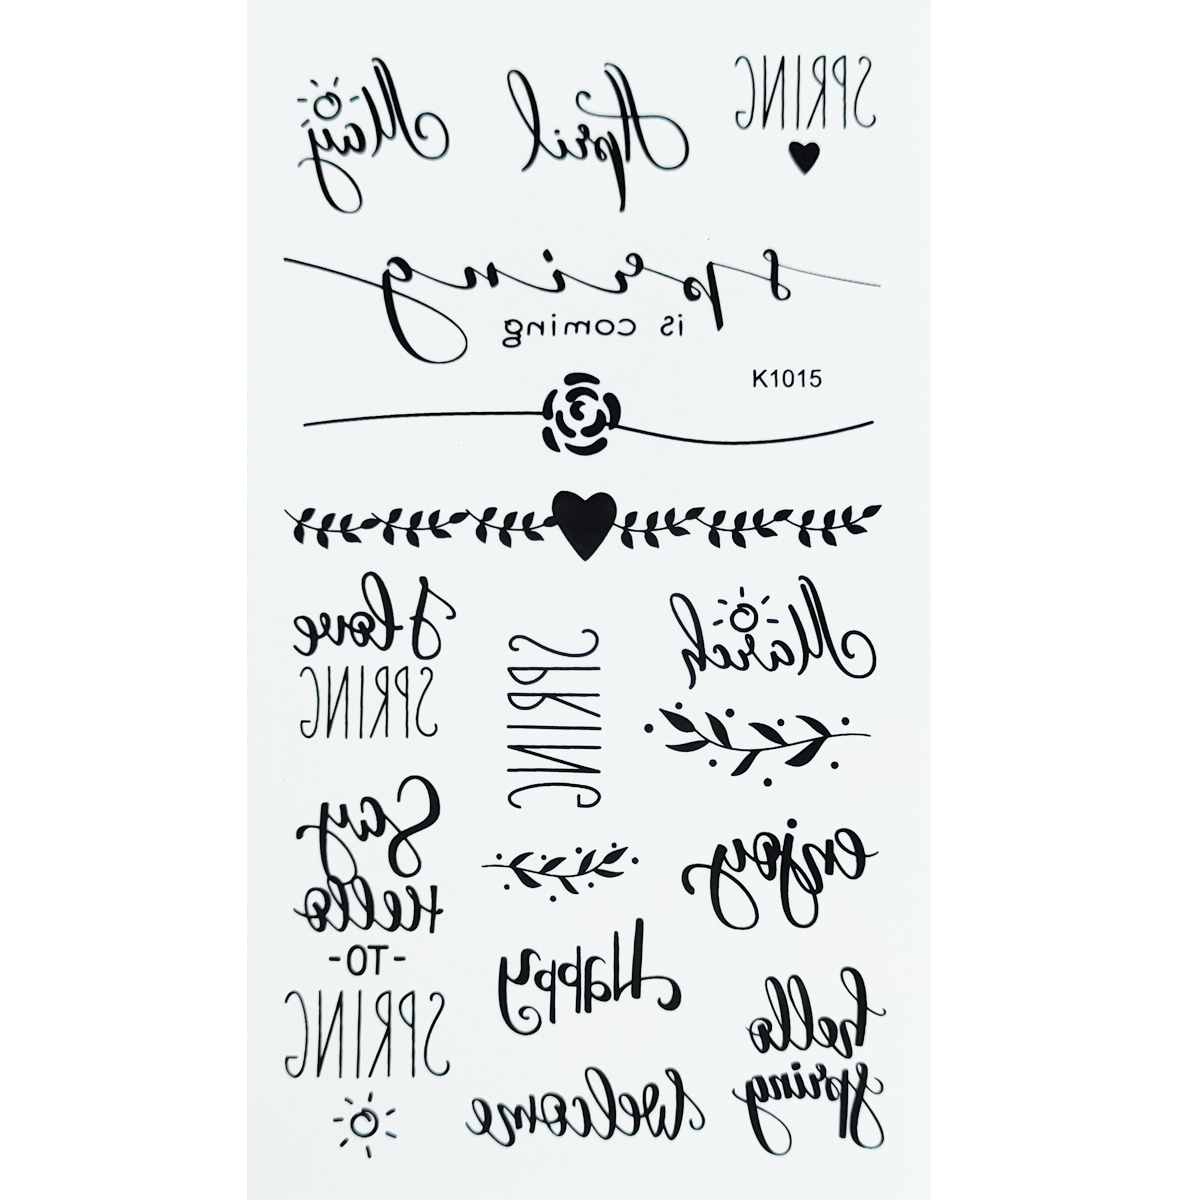 May
April
SPRING
spring
is coming
K1015
I love
SPRING
SPRING
March
Say
Hello
-TO-
SPRING
enjoy
Happy
hello
spring
welcome